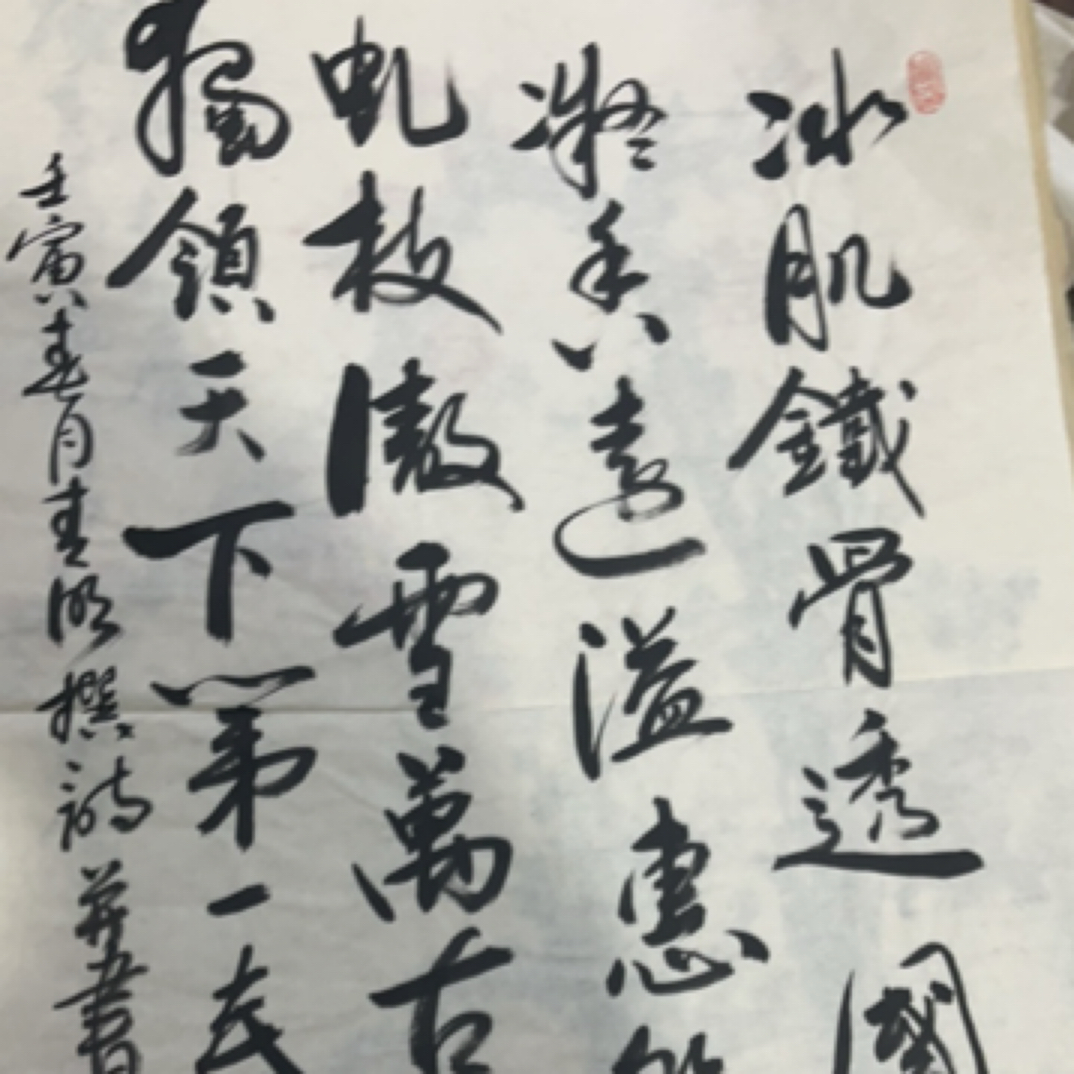 冰肌鐵骨透國
凝香遠溢惠
虬枝傲雪萬古
獨領天下第一
壬寅春月 撰詩并書